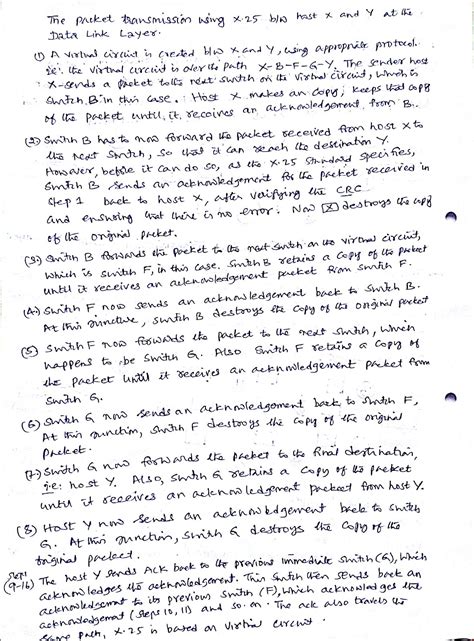 The packet transmission using X.25 b/w host X and Y at the
Data Link Layer.
(1) A virtual circuit is created b/w X and Y, using appropriate protocol.
ie: the virtual circuit is over the path X-B-F-G-Y. The sender host
X-sends a packet to the next switch on the virtual circuit, which is
Switch B in this case. Host X makes an copy; keeps that copy
of the packet until it receives an acknowledgement from B.
(2) Switch B has to now forward the packet received from host X to
the next Switch, so that it can reach the destination Y.
However, before it can do so, as the X.25 Standard specifies,
Switch B sends an acknowledgement for the packet received in
Step 1 back to host X, after verifying the CRC
and ensuring that there is no error. Now X destroys the copy
of the original packet.
(3) Switch B forwards the packet to the next switch on the virtual circuit,
which is switch F, in this case. Switch B retains a copy of the packet
until it receives an acknowledgement packet from switch F.
(4) Switch F now sends an acknowledgement back to switch B.
At this juncture, switch B destroys the copy of the original packet
(5) Switch F now forwards the packet to the next switch, which
happens to be Switch G. Also Switch F retains a copy of
the packet until it receives an acknowledgement packet from
Switch G.
(6) Switch G now sends an acknowledgement back to switch F,
At this junction, switch F destroys the copy of the original
packet.
(7) Switch G now forwards the packet to the final destination,
ie: host Y. Also, switch G retains a copy of the packet
until it receives an acknowledgement packet from host Y.
(8) Host Y now sends an acknowledgement back to switch
G. At this junction, switch G destroys the copy of the
original packet.
Step
(9-16) The host Y sends Ack back to the previous immediate switch (G), which
acknowledges the acknowledgement. This switch then sends back an
acknowledgement to its previous switch (F), which acknowledges the
acknowledgement (steps 10, 11) and so on. The ack also travels the
same path, X.25 is based on virtual circuit.